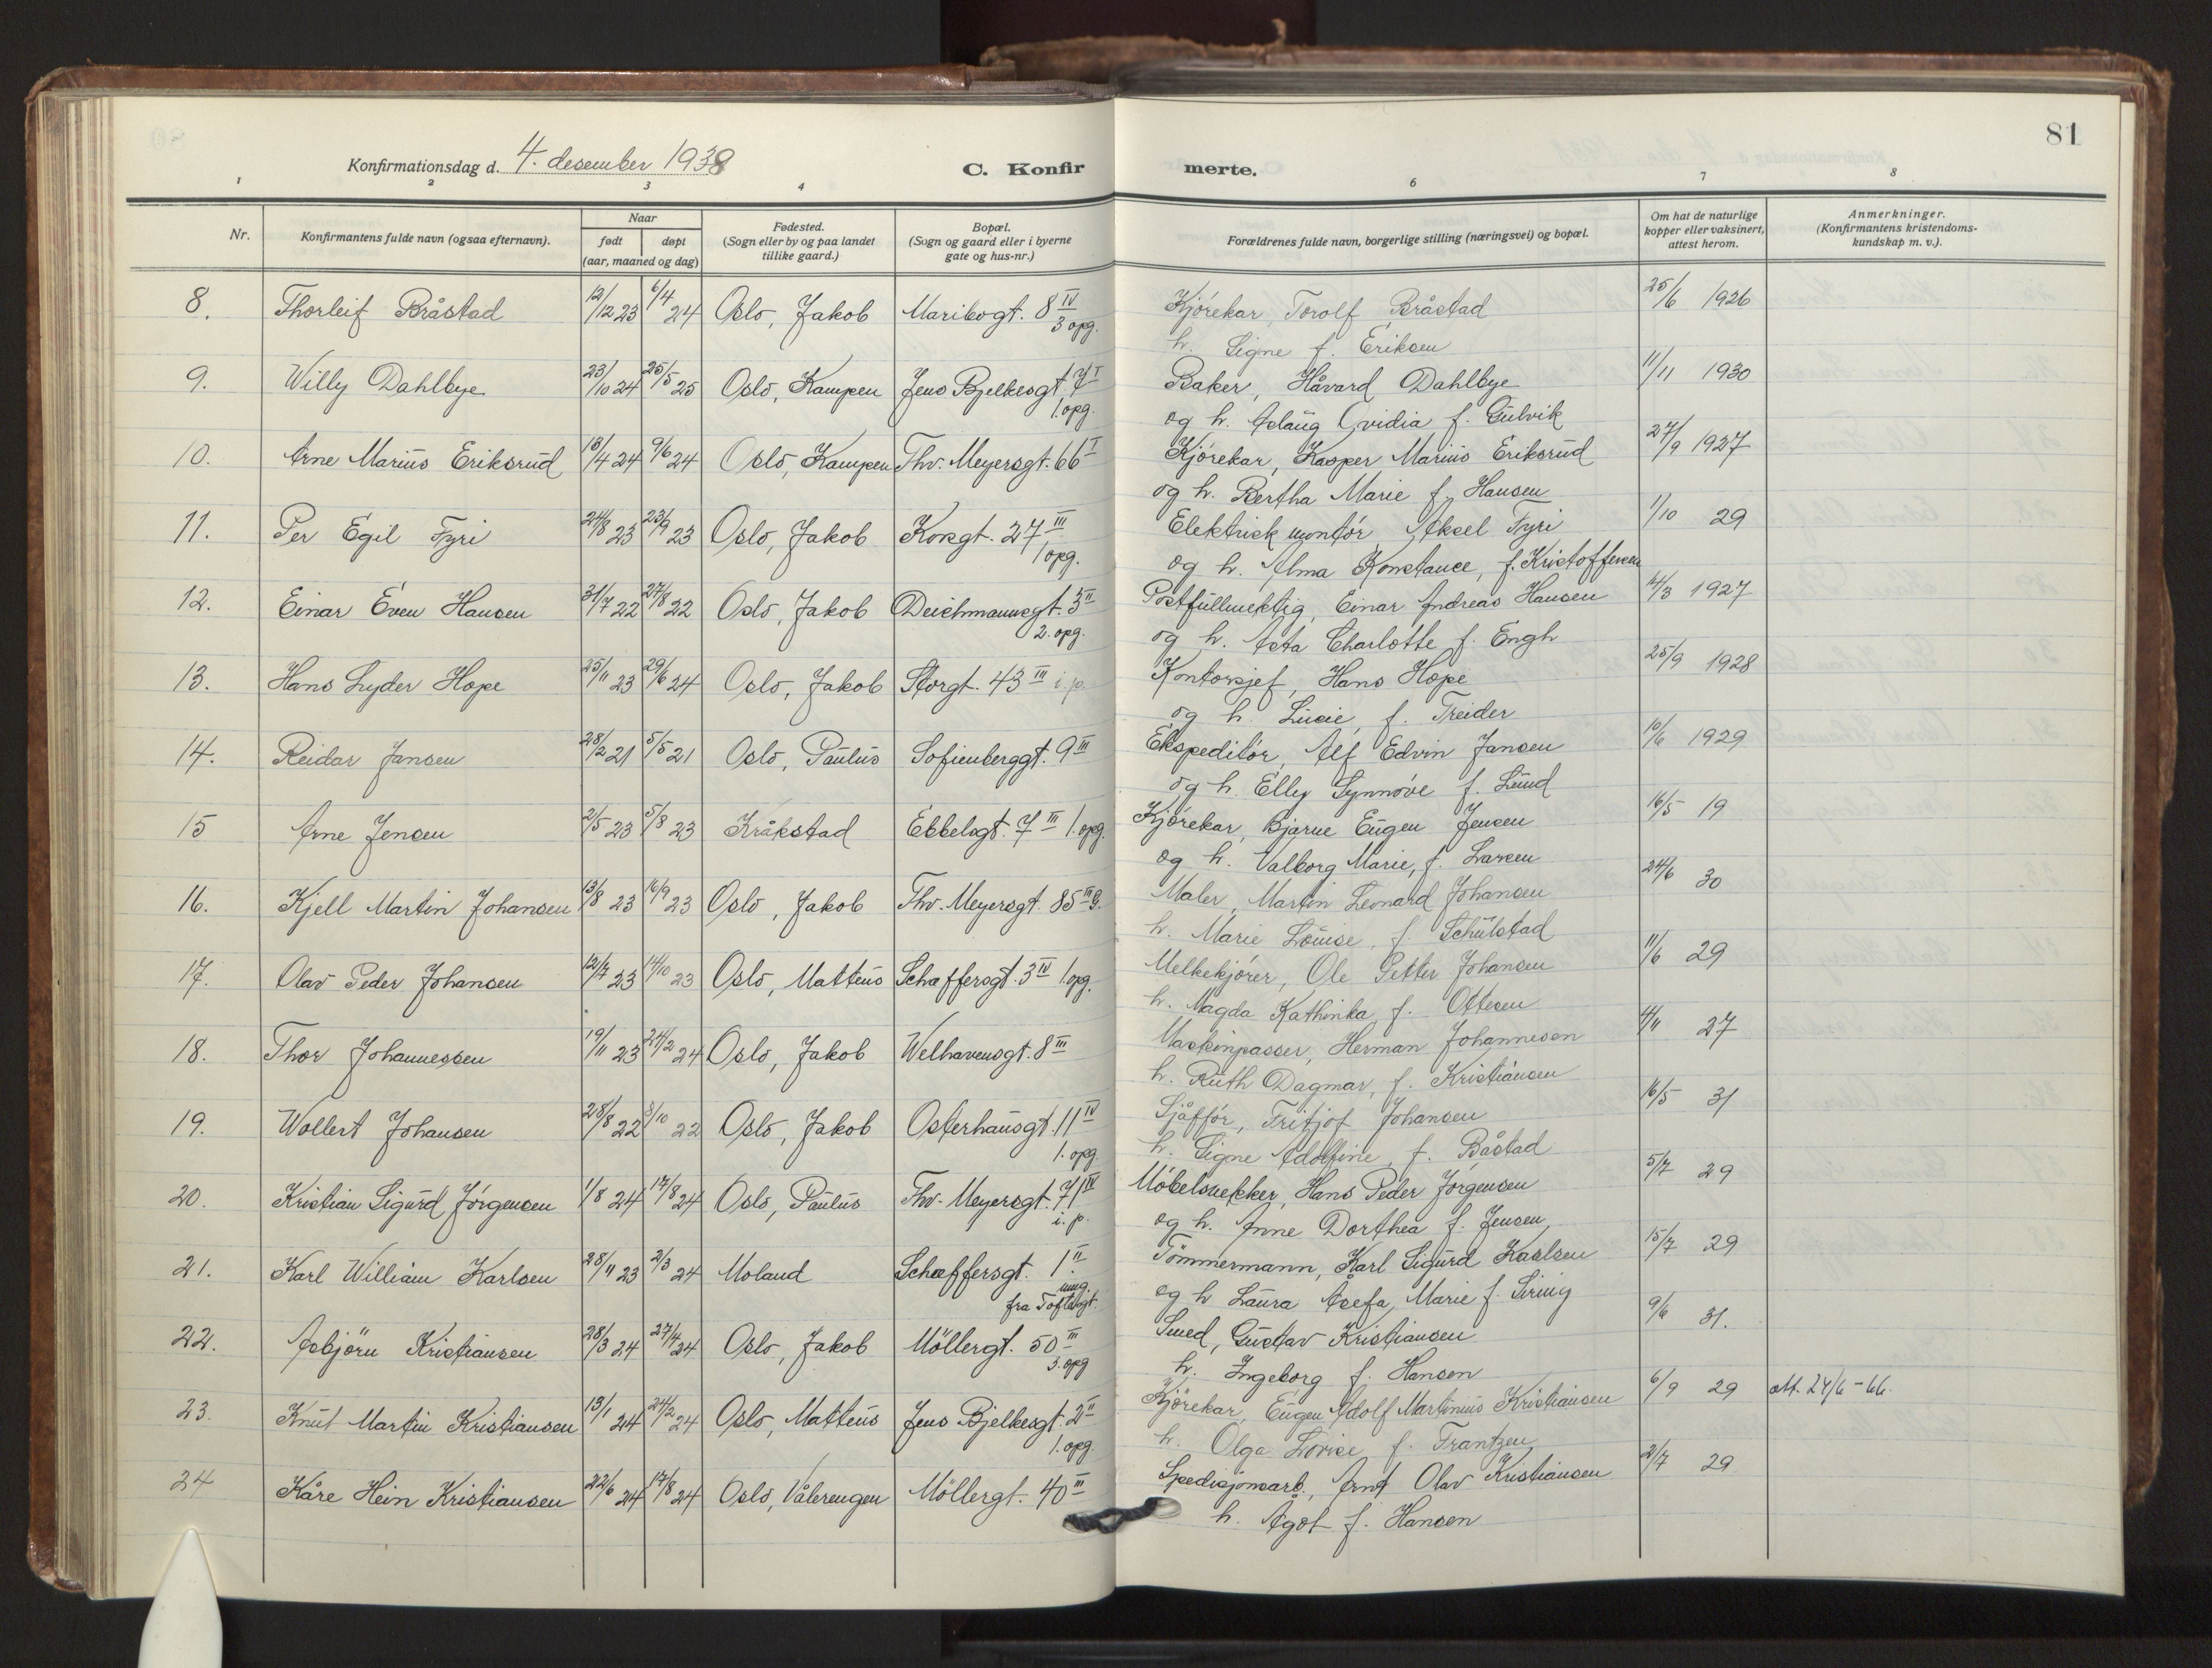 81
Konfirmationsdag d. 4. desember 1938
C. Konfirmerte.
1 2 3 4 6 7 8
Nr.
Konfirmantens fulde navn (ogsaa efternavn).
Naar
født døpt
(aar, maaned og dag)
Fødested.
(Sogn eller by og paa landet
tillike gaard.)
Bopæl.
(Sogn og gaard eller i byerne
gate og hus-nr.)
Forældrenes fulde navn, borgerlige stilling (næringsvei) og bopæl.
Om hat de naturlige
kopper eller vaksinert,
attest herom.
Anmerkninger.
(Konfirmantens kristendoms-
kundskap m. v.).
8. Thorleif Bråstad 12/12 23 6/4 24 Oslo, Jakob Maribogt. 8 IV 3 opg. Kjørekar, Torolf Bråstad 25/6 1926
h. Signe f. Eriksen
9. Willy Dahlbye 23/10 24 25/5 25 Oslo, Kampen Jens Bjelkesgt. 7 I 1. opg. Baker, Håvard Dahlbye 11/11 1930
og h. Aslaug Ovidia f. Gulvik
10. Arne Marius Eriksrud 13/4 24 9/6 24 Oslo, Kampen Thv. Meyersgt. 66 I Kjørekar, Kasper Marius Eriksrud 27/9 1927
og h. Bertha Marie f. Hansen
11. Per Egil Fyri 24/8 23 23/9 23 Oslo, Jakob Korsgt. 27 III 1 opg. Elektrisk montør, Aksel Fyri 1/10 29
og h. Alma Konstance, f. Kristoffersen
12. Einar Even Hansen 31/7 22 27/8 22 Oslo, Jakob Deichmannsgt. 3 II 2. opg. Postfullmektig, Einar Andreas Hansen 14/3 1927
og h. Asta Charlotte f. Engh
13. Hans Lyder Hope 25/11 23 29/6 24 Oslo, Jakob Storgt. 43 III i. p. Kontorsjef, Hans Hope 25/9 1928
og h. Lucie, f. Treider
14. Reidar Jansen 28/2 21 5/5 21 Oslo, Paulus Sofienberggt. 9 III Ekspeditør, Alf Edvin Jansen 10/6 1929
og h. Elley Synnøve f. Lund
15 Arne Jensen 2/5 23 5/8 23 Kråkstad Ebbelsgt. 7 III 1. opg. Kjørekar, Bjarne Eugen Jensen 16/5 19
og h. Valborg Marie, f. Larsen
16. Kjell Martin Johansen 13/8 23 16/9 23 Oslo, Jakob Thv. Meyersgt. 85 III g. Maler, Martin Leonard Johansen 24/6 30
h. Marie Louise, f. Schulstad
17. Olav Peder Johansen 12/7 23 14/10 23 Oslo, Matteus Schæffersgt. 3 IV 1. opg. Melkekjører, Ole Petter Johansen 11/6 29
h. Magda Kathinka, f. Ottesen
18. Thor Johannessen 19/11 23 24/2 24 Oslo, Jakob Welhavensgt. 8 III Maskinpasser, Herman Johannesen 4/11 27
h. Ruth Dagmar, f. Kristiansen
19. Wollert Johansen 28/8 22 8/10 22 Oslo, Jakob Osterhausgt. 11 IV 1. opg. Sjåffør, Fritjof Johansen 16/5 31
h. Signe Adolfine, f. Båstad
20. Kristian Sigurd Jørgensen 1/8 24 17/8 24 Oslo, Paulus Thv. Meyersgt. 71 IV i. p. Møbelsnekker, Hans Peder Jørgensen 5/7 29
og h. Anne Dorthea f. Jensen
21. Karl William Karlsen 28/11 23 2/3 24 Moland Schæffersgt. 1 II fra Toftesgt. Tømmermann, Karl Sigurd Karlsen 15/7 29
og h Laura Asefa, Marie f. Siring
22. Asbjørn Kristiansen 28/3 24 27/4 24 Oslo, Jakob Møllergt. 50 III 3. opg Smed, Gustav Kristiansen 9/6 31.
h. Ingeborg f. Hansen
23. Knut Martin Kristiansen 13/1 24 24/2 24 Oslo, Matteus Jens Bjelkesgt. 2 II 1. opg. Kjørekar, Eugen Adolf Martinius Kristiansen 6/9 29 att. 24/6-66.
h. Olga Lovise, f. Frantzen
24 Kåre Hein Kristiansen 22/6 24 17/8 24 Oslo, Vålerengen Møllergt. 40 III Spedisjonsarb., Arnt Olav Kristiansen 2/7 29
h. Ågot f. Hansen